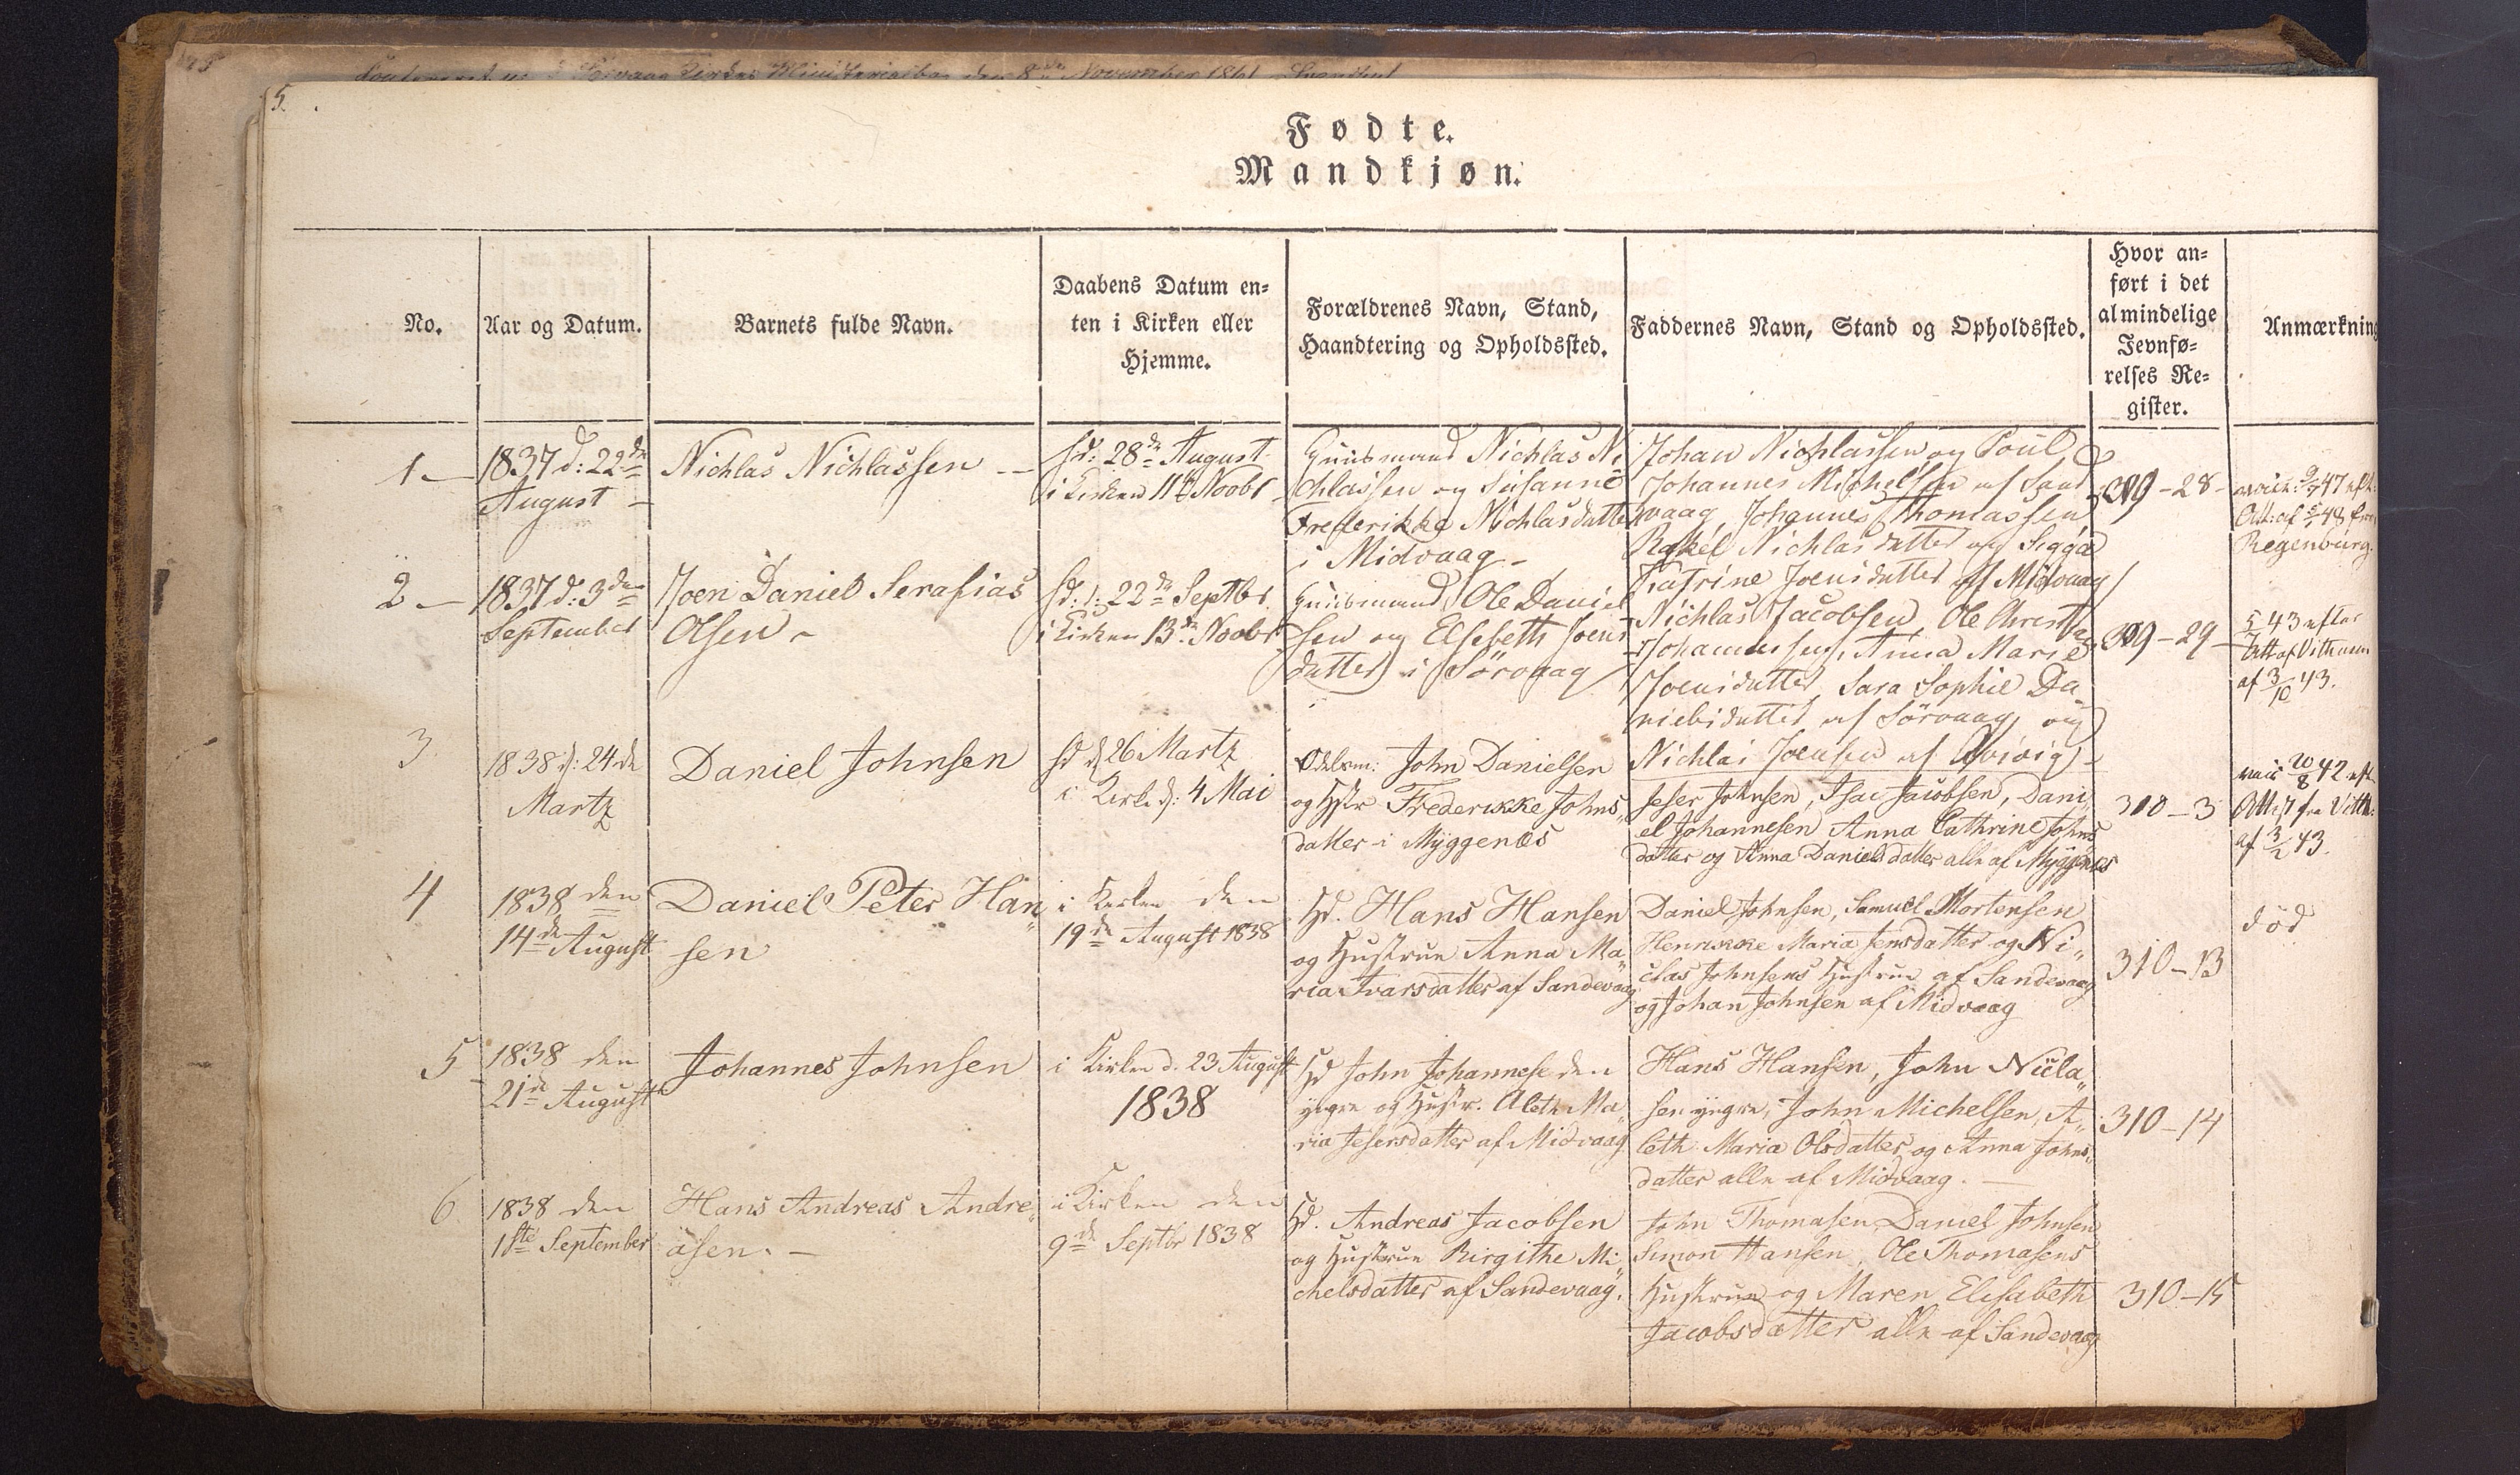 5.
Fødte.
Mandkjøn.
No.
Aar og Datum.
Barnets fulde Navn.
Daabens Datum en=
ten i Kirken eller
Hjemme.
Forældrenes Navn, Stand,
Haandtering og Opholdssted.
Faddernes Navn, Stand og Opholdssted.
Hvor an=
ført i det
almindelige
Jevnfø=
relses Re=
gister.
Anmærkning
1 —
1837 d: 22de
August —
Nichlas Nichlassen —
hd: 28de August
i Kirken 11te Novbr
Huusmand Nichlas Ni
chlassen og Susanne
Frederikke Nichlasdatter
i Midvaag —
Johan Nichlassen og Poul
Johannes Michelsen af Sand
vaag, Johannes Thomassen
Rakel Nichlasdatter og Sigga
Katrine Joensdatter af Midvaag
309 – 28 –
47 eft:
Att: af 48 fra
Regenburg.
2 —
1837 d: 3de
September
Joen Daniel Serafias
Olsen –
hd: d: 22de Septbr
i Kirken 13de Novbr
Huusmand Ole Daniel
sen og Elsebeth Joens
datter i Sörvaag
Nichlas Jacobsen, Ole Christ
Johannessen, Anna Marie
Joensdatter, Sara Sophie Da
nielsdatter af Sörvaag og
Nichlas Joensen af Qvivig –
309 – 29 –
5 43 efter
Att af
af 3/10 43.
3
1838 d: 24de
Martz
Daniel Johnsen
hd d 26 Martz
i Kirk d: 4 Mai
Odelsm: John Danielsen
og Hstr Frederikke Johns„
datter i Myggenæs
Jeser Johnsen, Isac Jacobsen, Dani„
el Johannesen Anna Cathrine Johns
datter og Anna Danielsdatter alle af Myggenæs
310 – 3
20/8 42 eft
Attest fra
af 3/2 43.
4
1838 den
14de August
Daniel Peter Han„
sen
i Kirken den
19de August 1838
Hd. Hans Hansen
og Hustrue Anna Ma„
ria Ivarsdatter af Sandevaag
Daniel Johnsen, Samuel Mortensen
Henrikke Maria Jensdatter og Ni„
clas Johnsens Hustrue af Sandevaag
og Johan Johnsen af Midvaag
310 – 13
död
5
1838 den
21de August
Johannes Johnsen
i Kirken d. 23 August
1838
Hd John Johannese den
yngre og Hustr. Aleth Ma„
ria Jesersdatter af Midvaag
Hans Hansen, John Nicla„
sen yngre, John Michelsen, A„
leth Maria Olsdatter og Anna Johns„
datter alle af Midvaag. —
310 – 14
6
1838 den
1ste September
Hans Andreas Andre„
asen. —
i Kirken den
9de Septbr 1838
Hd. Andreas Jacobsen
og Hustrue Birgithe Mi„
chelsdatter af Sandevaag.
John Thomasen, Daniel Johnsen
Simon Hansen, Ole Thomasens
Hustrue og Maren Elisabeth
Jacobsdatter alle af Sandevaag
310 – 15